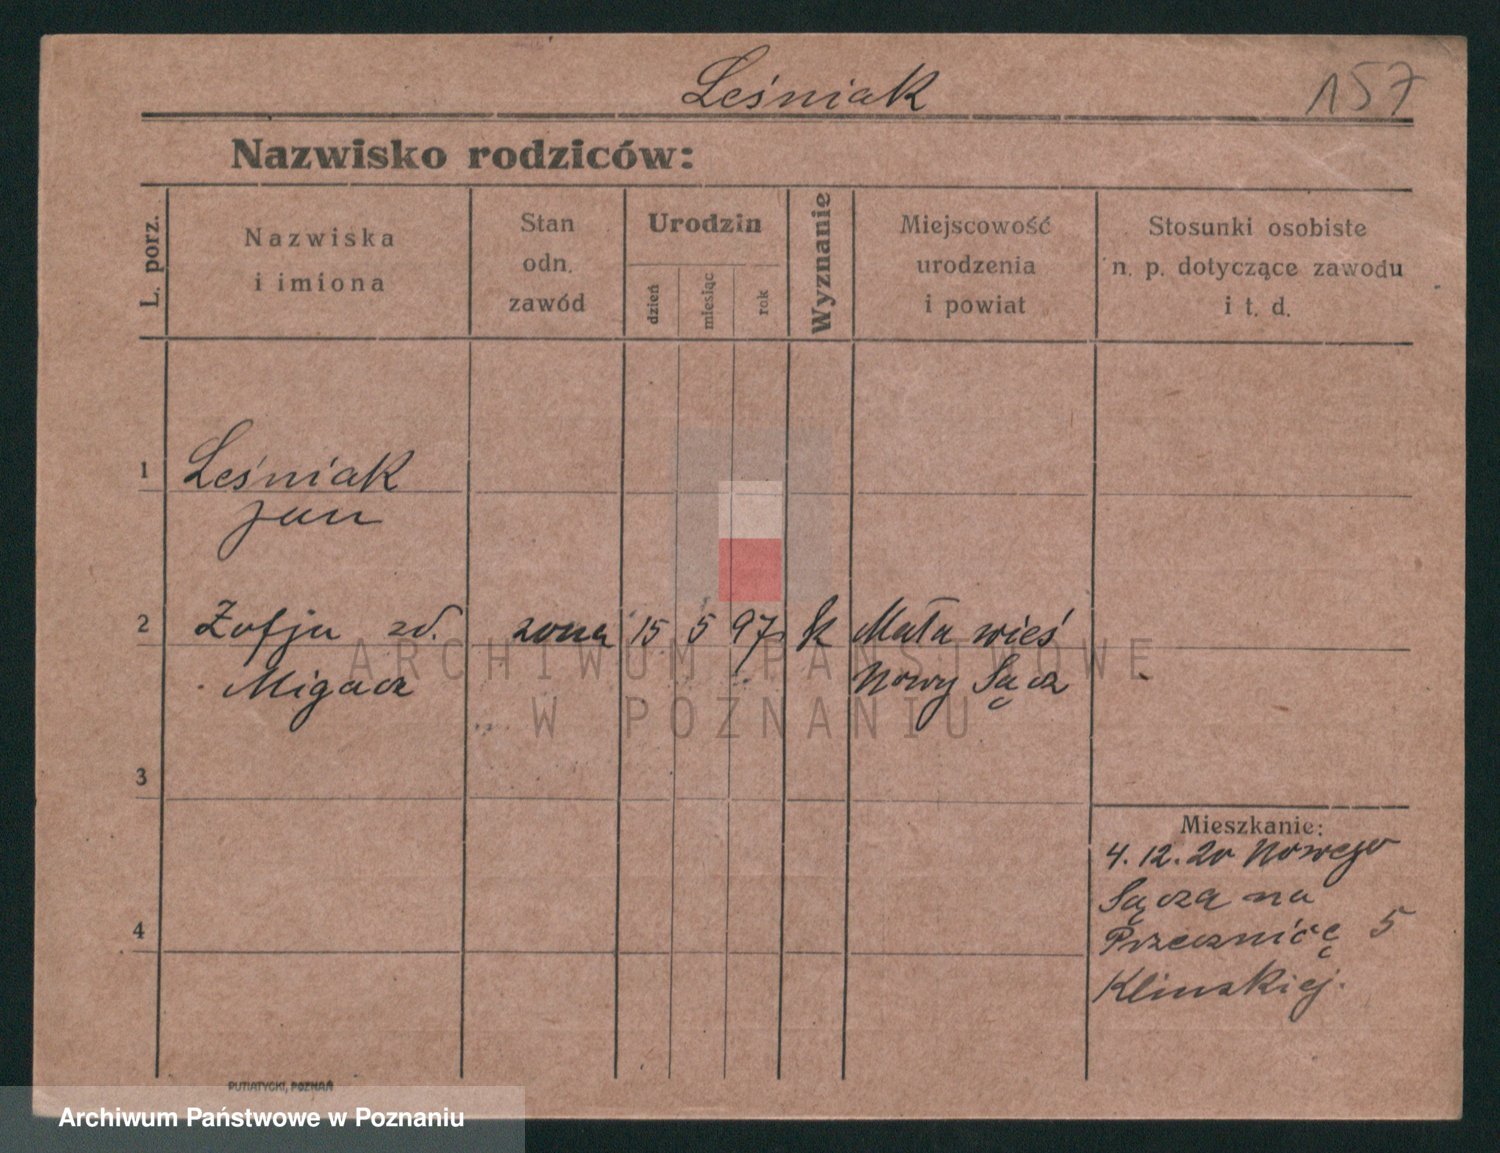 Leśniak
157
Nazwisko rodziców:
L. porz.
Nazwiska
i imiona
Stan
odn.
zawód
Urodzin
dzień
miesiąc
rok
Wyznanie
Miejscowość
urodzenia
i powiat
Stosunki osobiste
n. p. dotyczące zawodu
i t. d.
1
Leśniak
Jan
2
Zofja zd. żona 15 5 97 k Mała wieś
Migacz
Nowy Sącz
ARCHIWUM PAŃSTWOWE
W POZNANIU
3
Mieszkanie:
4.12.20 Nowego
Sącza na
5
4
PUTIATYCKI, POZNAŃ
Archiwum Państwowe w Poznaniu